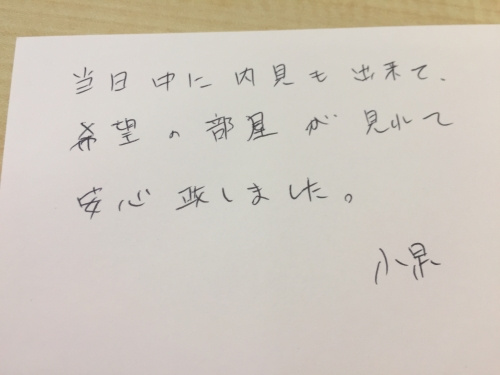 当日中に内見も出来て、
希望の部屋が見れて
安心致しました。
小泉